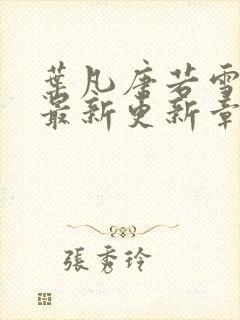 葉凡唐若雪
最新更新章
張秀玲